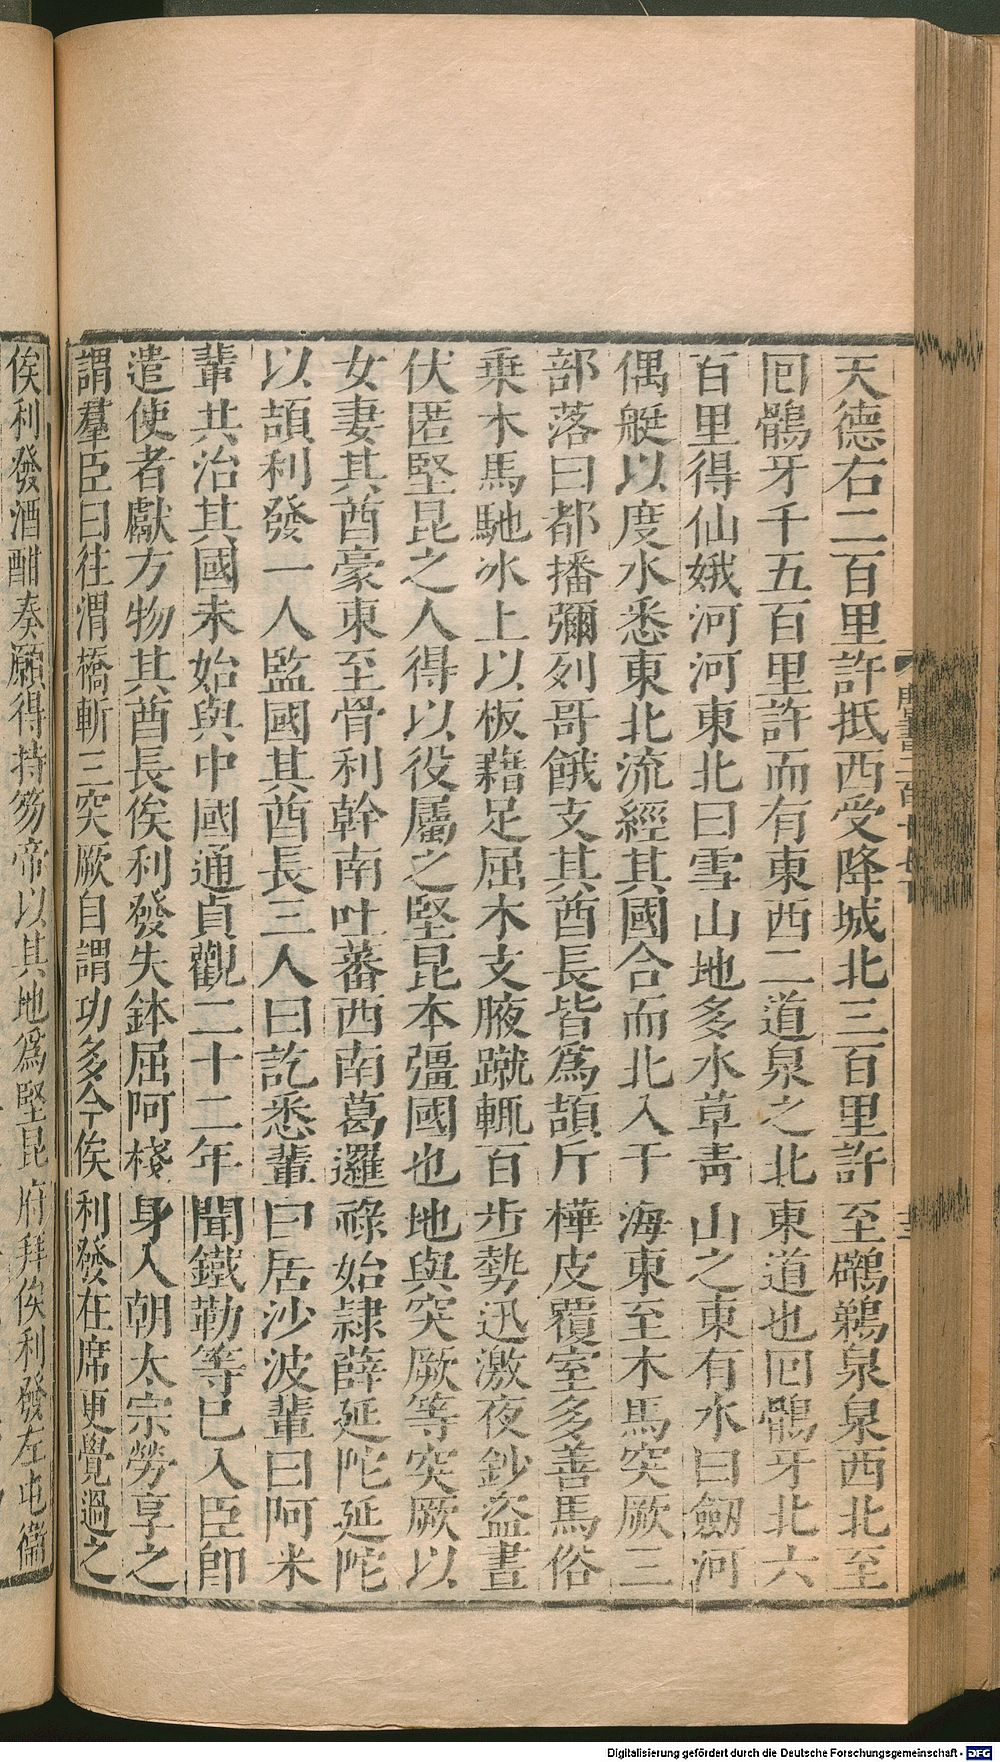 天德右二百里許抵西受降城北三百里許至鸊鵜泉泉西北至
回鶻牙千五百里許而有東西二道泉之北東道也回鶻牙北六
百里得仙娥河河東北曰雪山地多水草青山之東有水曰劒河
偶艇以度水悉東北流經其國合而北入于海東至木馬突厥三
部落曰都播彌列哥餓支其酋長皆爲頡斤樺皮覆室多善馬俗
乗木馬馳冰上以板藉足屈木支腋蹴輒百步勢迅激夜鈔盗晝
伏匿堅昆之人得以役屬之堅昆本彊國也地與突厥等突厥以
女妻其酋豪東至骨利幹南吐蕃西南葛邏祿始隷薛延陀延陀
以頡利發一人監國其酋長三人曰訖悉輩曰居沙波輩曰阿米
輩共治其國未始與中國通貞觀二十二年聞鐵勒等已入臣卽
遣使者獻方物其酋長俟利發失鉢屈阿棧身入朝太宗勞享之
謂羣臣曰往渭橋斬三突厥自謂功多今俟利發在席更覺過之
俟利發酒酣奏願得持笏帝以其地爲堅昆府拜俟利發左屯衞
Digitalisierung gefördert durch die Deutsche Forschungsgemeinschaft - DFG